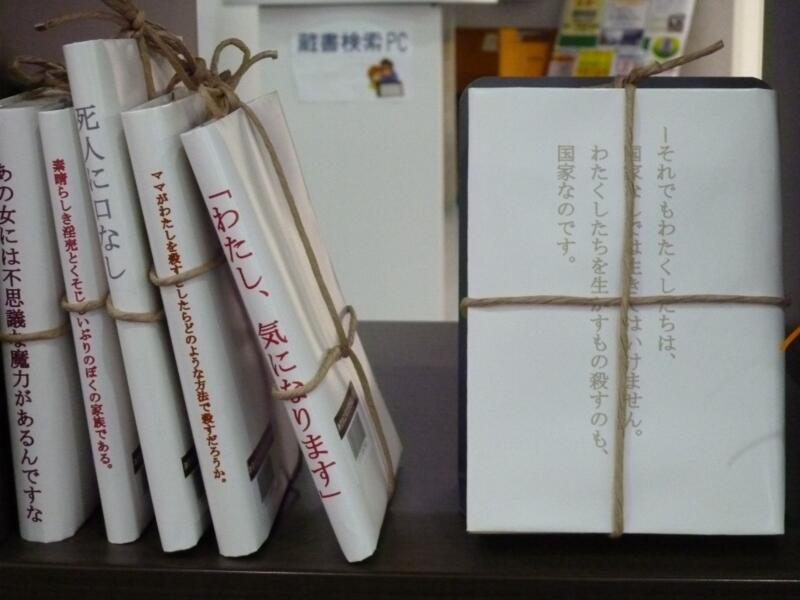 蔵書検索PC
あの女には不思議な魔力があるんですな
素晴らしき淫売とくそじじいぶりのぼくの家族である。
死人に口なし
ママがわたしを殺すとしたらどのような方法で殺すだろうか。
「わたし、気になります」
―それでもわたくしたちは、
国家なしでは生きてはいけません。
わたくしたちを生かすもの殺すのも、
国家なのです。